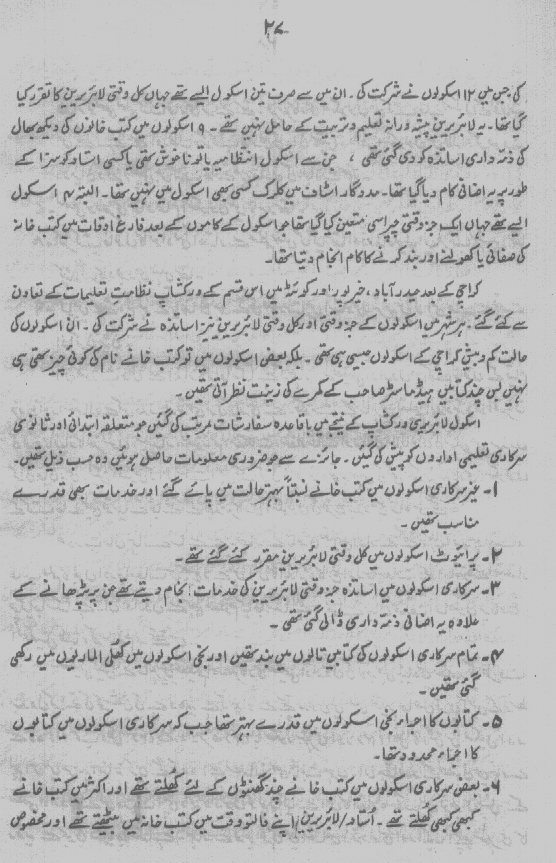 ۲۷
کی جس میں ۱۲ اسکولوں نے شرکت کی۔ ان میں سے صرف تین اسکول ایسے تھے جہاں کل وقتی لائبریرین کا تقرر کیا
گیا تھا۔ یہ لائبریرین پیشہ ورانہ تعلیم و تربیت کے حامل نہیں تھے۔ ۹ اسکولوں میں کتب خانوں کی دیکھ بھال
کی ذمہ داری اساتذہ کو دی گئی تھی، جن سے اسکول انتظامیہ یا تو ناخوش تھی یا کسی استاد کو سزا کے
طور پر یہ اضافی کام دیا گیا تھا۔ مددگار اسٹاف میں کلرک کسی بھی اسکول میں نہیں تھا۔ البتہ ۴ اسکول
ایسے تھے جہاں ایک جزوقتی چپراسی متعین کیا گیا تھا جو اسکول کے کاموں کے بعد فارغ اوقات میں کتب خانہ
کی صفائی یا کھولنے اور بند کرنے کا کام انجام دیتا تھا۔
کراچی کے بعد حیدرآباد، خیرپور اور کوئٹہ میں اس قسم کے ورکشاپ نظامت تعلیمات کے تعاون
سے کئے گئے۔ ہر شہر میں اسکولوں کے جزوقتی اور کل وقتی لائبریرین نیز اساتذہ نے شرکت کی۔ ان اسکولوں کی
حالت کم و بیش کراچی کے اسکولوں جیسی ہی تھی۔ بلکہ بعض اسکولوں میں تو کتب خانے نام کی کوئی چیز تھی ہی
نہیں بس چند کتابیں ہیڈ ماسٹر صاحب کے کمرے کی زینت نظر آتی تھیں۔
اسکول لائبریری ورکشاپ کے نتیجے میں باقاعدہ سفارشات مرتب کی گئیں جو متعلقہ ابتدائی اور ثانوی
سرکاری تعلیمی اداروں کو پیش کی گئیں۔ جائزے سے جو ضروری معلومات حاصل ہوئیں وہ حسب ذیل تھیں۔
۱۔ غیر سرکاری اسکولوں میں کتب خانے نسبتاً بہتر حالت میں پائے گئے اور خدمات بھی قدرے
مناسب تھیں۔
۲۔ پرائیوٹ اسکولوں میں کل وقتی لائبریرین مقرر کئے گئے تھے۔
۳۔ سرکاری اسکولوں میں اساتذہ جزوقتی لائبریرین کی خدمات انجام دیتے تھے جن پر پڑھانے کے
علاوہ یہ اضافی ذمہ داری ڈالی گئی تھی۔
۴۔ تمام سرکاری اسکولوں کی کتابیں تالوں میں بند تھیں اور نجی اسکولوں میں کھلی الماریوں میں رکھی
گئی تھیں۔
۵۔ کتابوں کا اجراء نجی اسکولوں میں قدرے بہتر تھا جب کہ سرکاری اسکولوں میں کتابوں
کا اجراء محدود تھا۔
۶۔ بعض سرکاری اسکولوں میں کتب خانے چند گھنٹوں کے لئے کھلتے تھے اور اکثر میں کتب خانے
کبھی کبھی کھلتے تھے۔ استاد/لائبریرین اپنے فالتو وقت میں کتب خانہ میں بیٹھتے تھے اور مخصوص